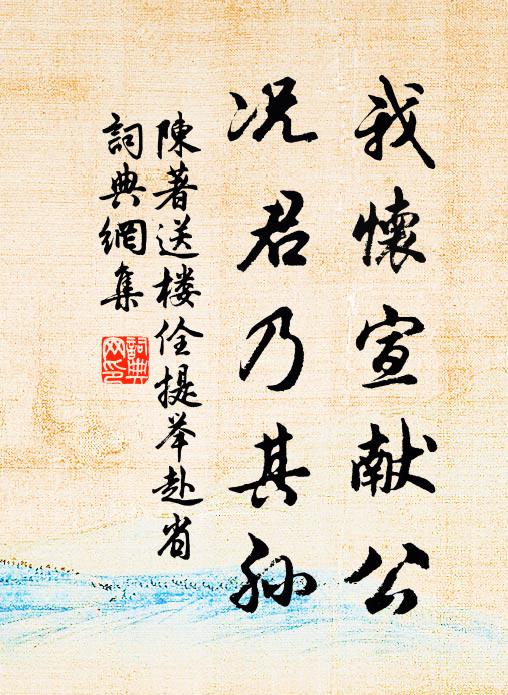 我懷宣献公
况君乃其孙
陳著送楼佺提举赴省
詞典網集
詞典网印